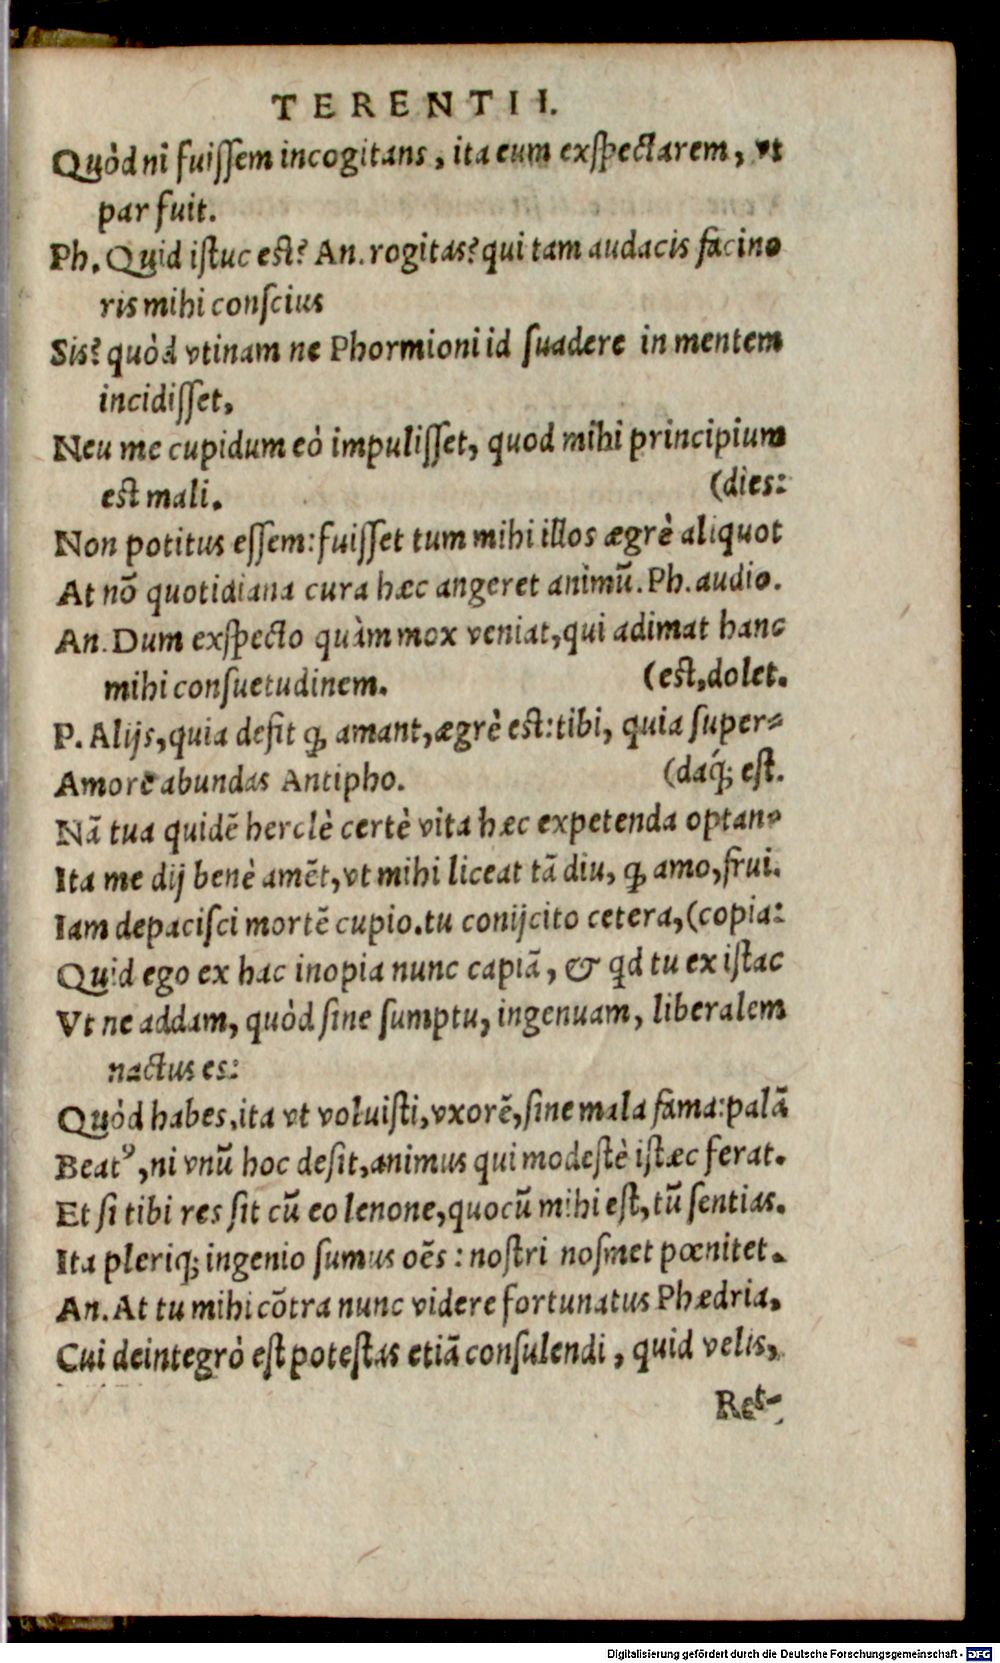 TERENTII.
Quòd ni fuissem incogitans, ita eum exspectarem, vt
par fuit.
Ph. Quid istuc est? An. rogitas? qui tam audacis facino
ris mihi conscius
Sis? quòd vtinam ne Phormioni id suadere in mentem
incidisset,
Neu me cupidum eò impulisset, quod mihi principium
est mali. (dies:
Non potitus essem: fuisset tum mihi illos ægrè aliquot
At nõ quotidiana cura hæc angeret animũ. Ph. audio.
An. Dum exspecto quàm mox veniat, qui adimat hanc
mihi consuetudinem. (est, dolet.
P. Alijs, quia defit ꝙ amant, ægrè est: tibi, quia super-
Amore abundas Antipho. (daq́; est.
Nã tua quidẽ herclè certè vita hæc expetenda optan-
Ita me dij benè amẽt, vt mihi liceat tã diu, ꝙ amo, frui.
Iam depacisci mortẽ cupio. tu conijcito cetera, (copia:
Quid ego ex hac inopia nunc capiã, & qd tu ex istac
Vt ne addam, quòd sine sumptu, ingenuam, liberalem
nactus es:
Quòd habes, ita vt voluisti, vxorẽ, sine mala fama: palã
Beatꝰ, ni vnũ hoc desit, animus qui modestè istæc ferat.
Et si tibi res sit cũ eo lenone, quocũ mihi est, tũ sentias.
Ita pleriq; ingenio sumus oẽs: nostri nosmet pœnitet.
An. At tu mihi cõtra nunc videre fortunatus Phædria,
Cui deintegrò est potestas etiã consulendi, quid velis,
Ret-
Digitalisierung gefördert durch die Deutsche Forschungsgemeinschaft - DFG